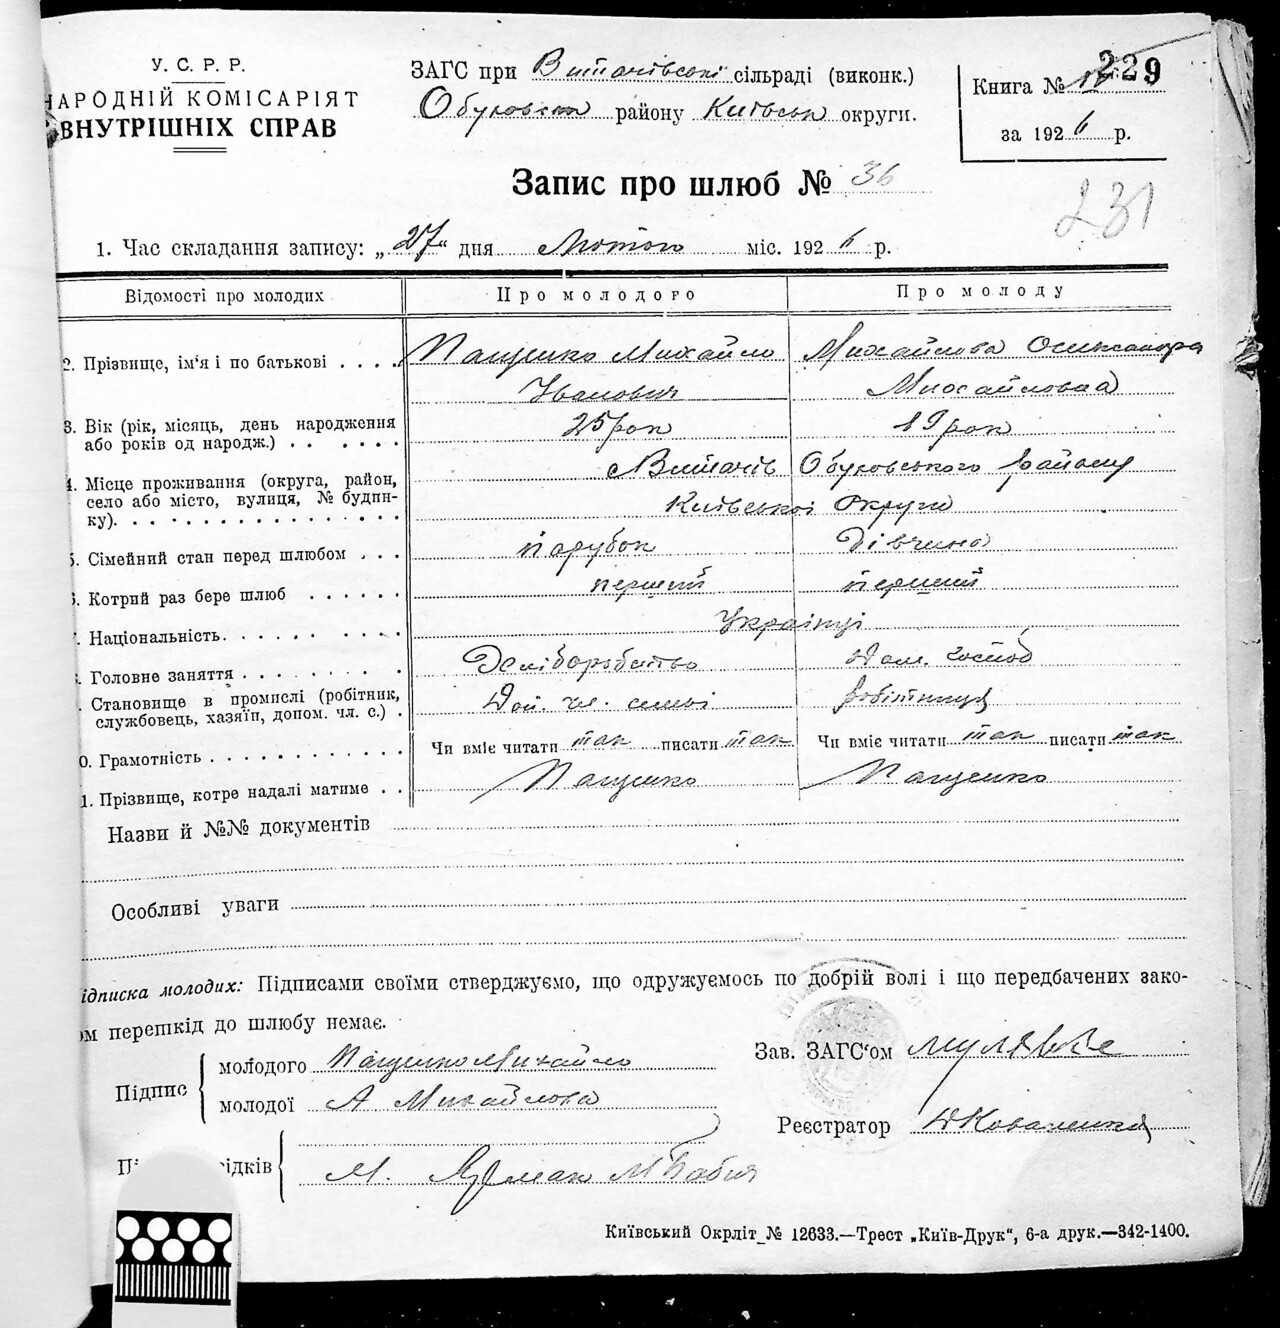 У. С. Р. Р.
НАРОДНІЙ КОМІСАРІЯТ
ВНУТРІШНІХ СПРАВ
ЗАГС при Витачівські сільраді (виконк.)
Обуховськ району Київськ округи.
229
Книга №
за 1926 р.
Запис про шлюб № 36
231
1. Час складання запису: „27“ дня Лютого міс. 1926 р.
Відомості про молодих Про молодого Про молоду
2. Прізвище, ім'я і по батькові . . . . Пащенко Михайло Михайлова Олександра
Іванович Михайловна
3. Вік (рік, місяць, день народження 25 рок 19 рок
або років од народж.) . . . . . .
4. Місце проживання (округа, район, Витачів Обуховського району
село або місто, вулиця, № будин- Київської Округи
ку). . . . . . . . . . . . . . . .
5. Сімейний стан перед шлюбом . . . парубок Дівчина
6. Котрий раз бере шлюб . . . . . . перший перший
7. Національність. . . . . . . . . . Українці
8. Головне заняття . . . . . . . . . Хліборобство Дом. господ
9. Становище в промислі (робітник, Доп. чл. семьі робітниця
службовець, хазяїн, допом. чл. с.) .
10. Грамотність . . . . . . . . . . . Чи вміє читати так писати так Чи вміє читати так писати так
11. Прізвище, котре надалі матиме . . Пащенко Пащенко
Назви й №№ документів
Особливі уваги
Підписка молодих: Підписами своїми стверджуємо, що одружуємось по добрій волі і що передбачених зако-
ом перешкід до шлюбу немає.
Підпис молодого Пащенко Михайло
молодої А Михайлова
Зав. ЗАГС'ом
Реєстратор Коваленко
Пі ідків М. Ярмак М Бабич
Київський Окрліт № 12633.—Трест „Київ-Друк“, 6-а друк.—342-1400.